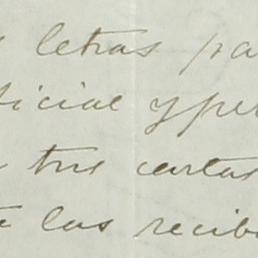 letras pa
ficial y per
tus cartas
las recib